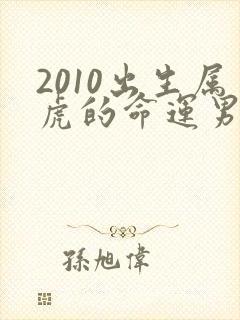 2010出生属
虎的命運男
孫旭偉